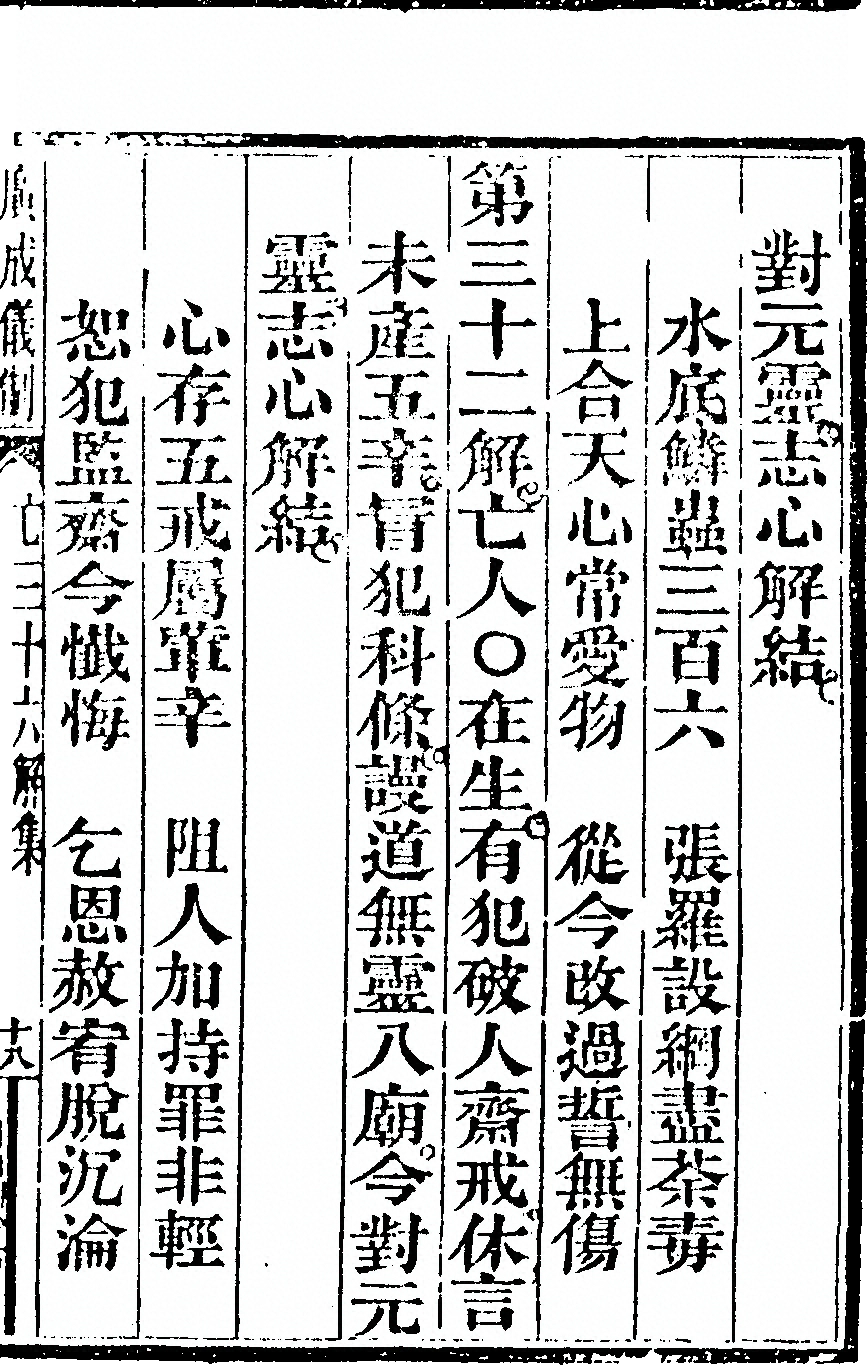 對元靈志心解結
水底鱗蟲三百六　張羅設綱盡荼毒
上合天心常愛物　從今改過誓無傷
第三十二解亡人〇在生有犯破人齋戒休言
未產五辛冒犯科條謾道無靈八廟今對元
靈志心解結
心存五戒屬葷辛　阻人加持罪非輕
恕犯監齋今懺悔　乞恩赦宥脫沉淪
廣成儀制　亡三十六解集　十八